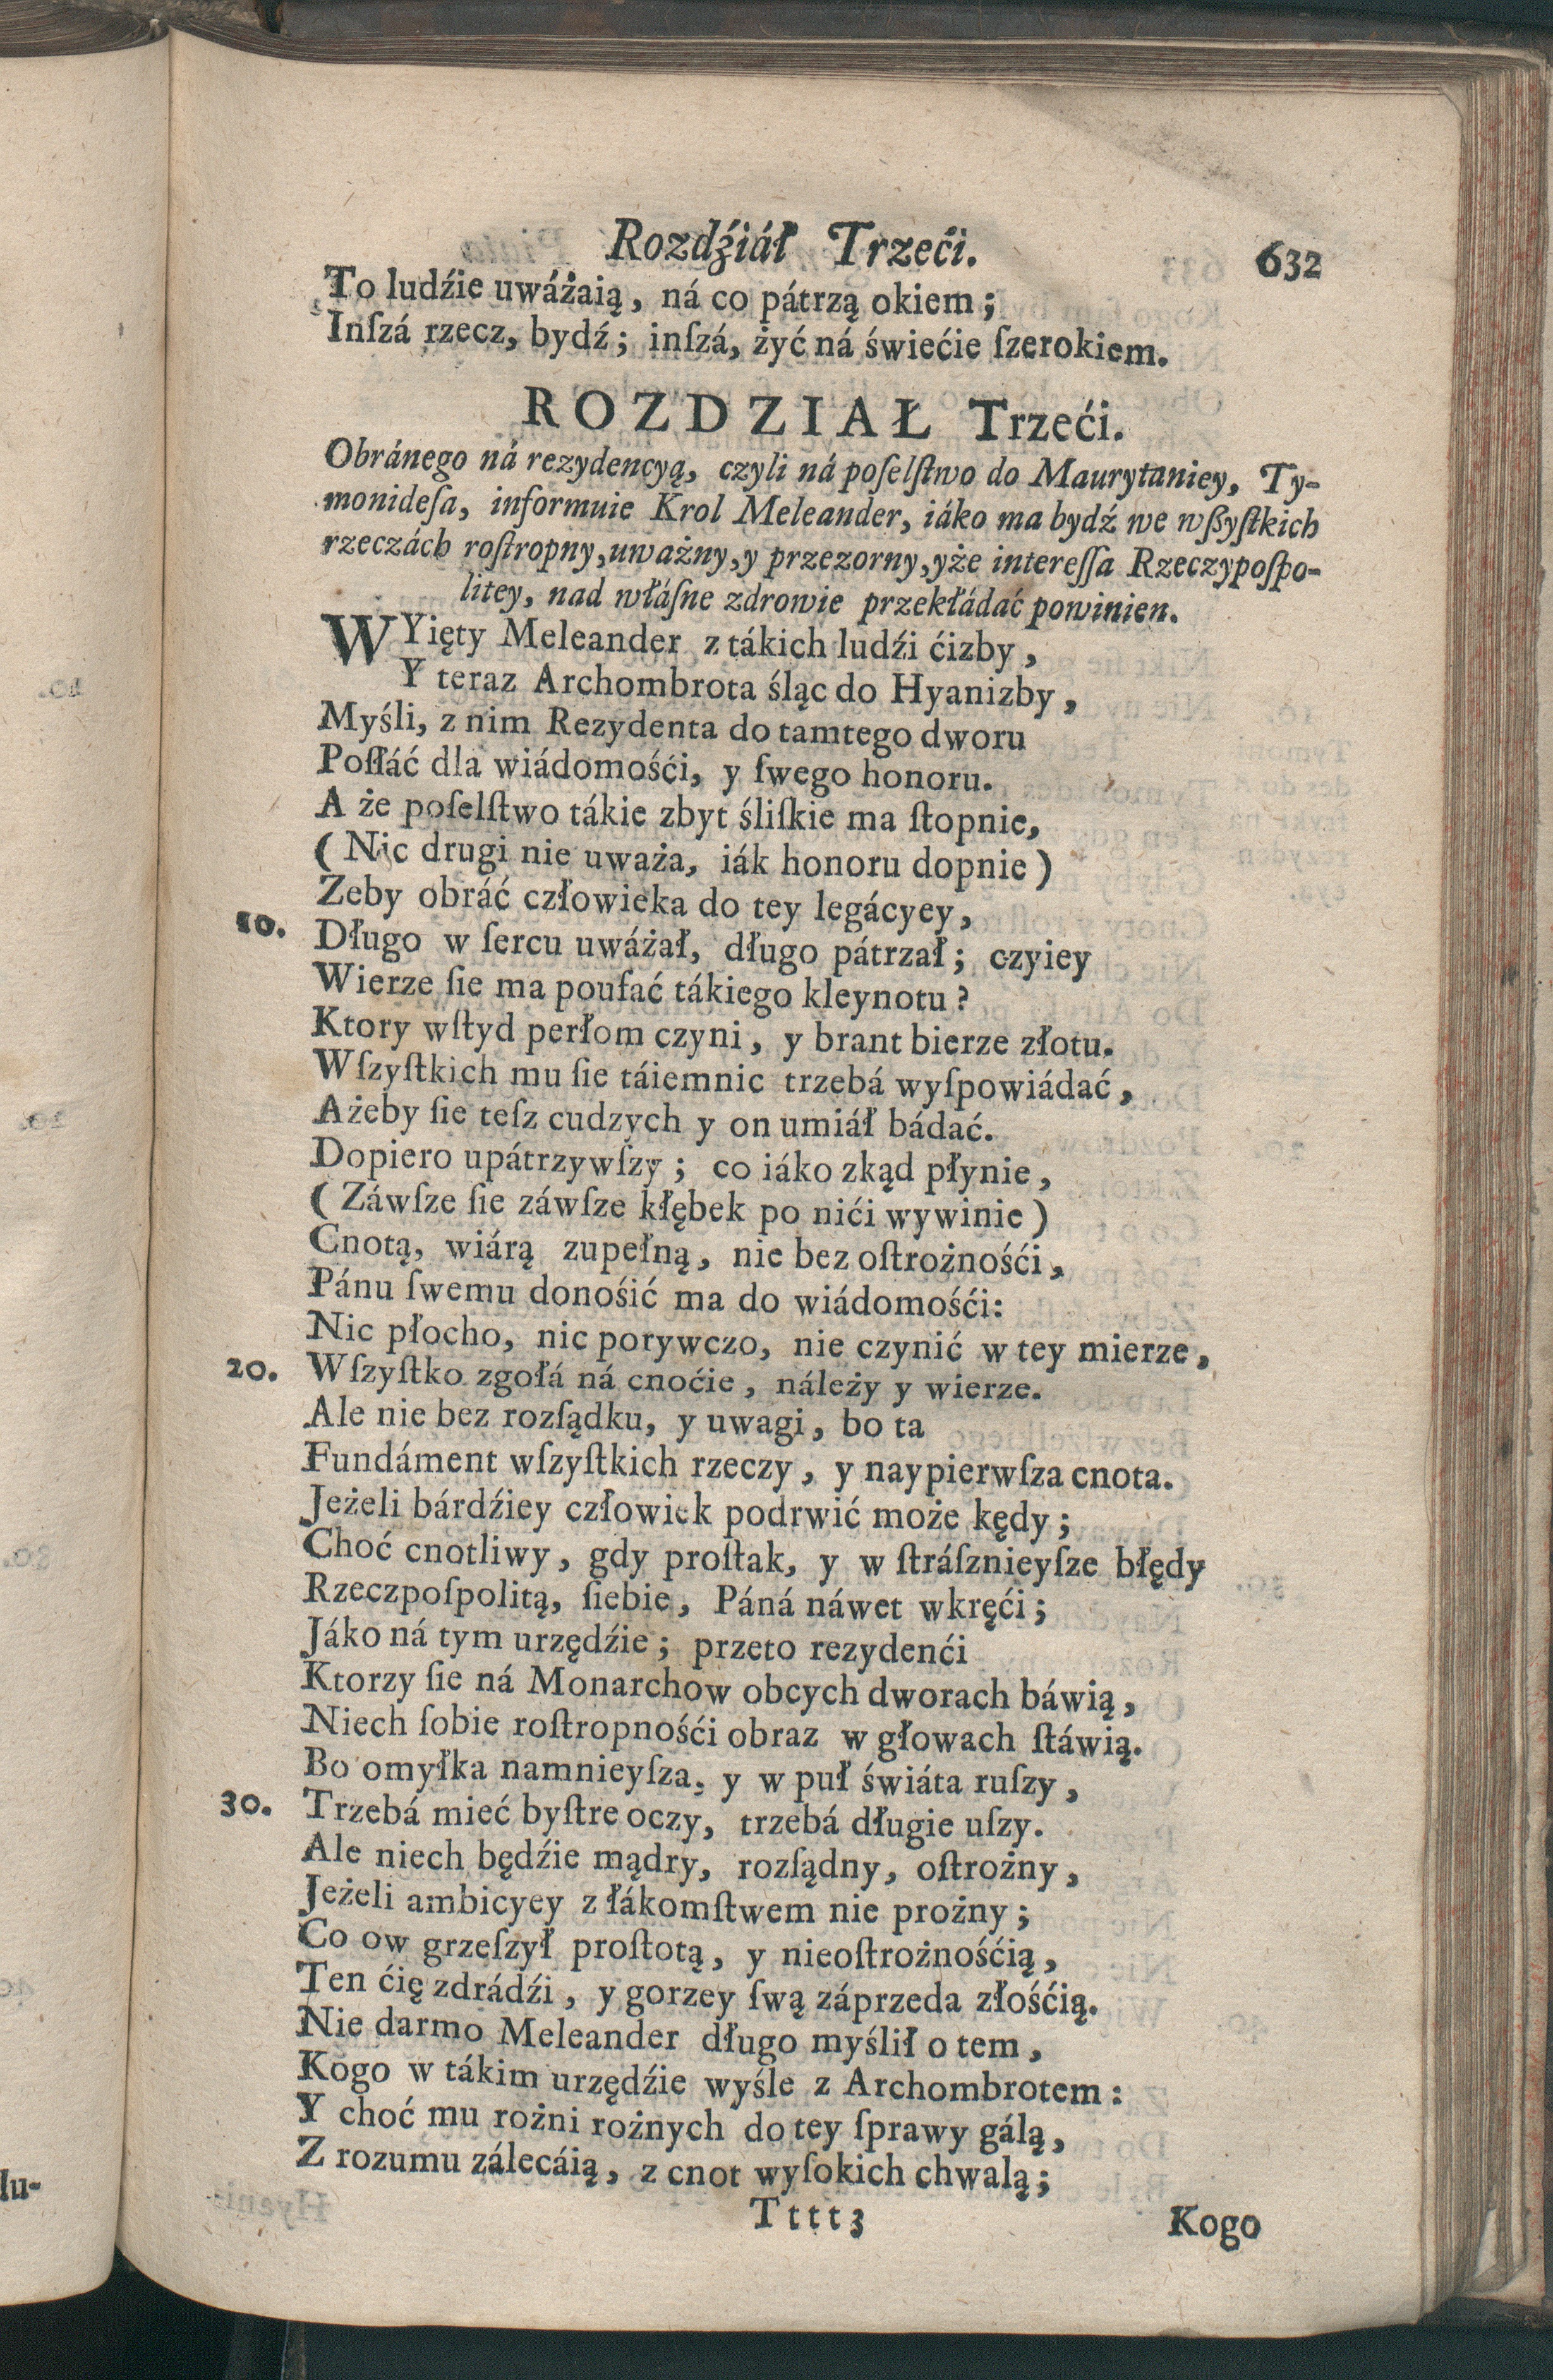 Rozdźiáł Trzeći.
632
To ludźie uwáżaią, ná co pátrzą okiem;
Inſzá rzecz, bydź; inſzá, żyć ná świećie ſzerokiem.
ROZDZIAŁ Trzeći.
Obránego ná rezydencyą, czyli ná poſelſtwo do Maurytaniey, Ty-
monideſa, informuie Krol Meleander, iáko ma bydź we wßyſtkich
rzeczách roſtropny, uważny, y przezorny, yże intereſſa Rzeczypoſpo-
litey, nad włáſne zdrowie przekłádać powinien.
WYięty Meleander z tákich ludźi ćizby,
Y teraz Archombrota śląc do Hyanizby,
Myśli, z nim Rezydenta do tamtego dworu
Poſłáć dla wiádomośći, y ſwego honoru.
A że poſelſtwo tákie zbyt śliſkie ma ſtopnie,
(Nic drugi nie uważa, iák honoru dopnie)
Zeby obráć człowieka do tey legácyey,
10. Długo w ſercu uwáżał, długo pátrzał; czyiey
Wierze ſie ma poufać tákiego kleynotu?
Ktory wſtyd perłom czyni, y brant bierze złotu.
Wſzyſtkich mu ſie táiemnic trzebá wyſpowiádać,
Ażeby ſie teſz cudzych y on umiáł bádać.
Dopiero upátrzywſzy; co iáko zkąd płynie,
(Záwſze ſie záwſze kłębek po nići wywinie)
Cnotą, wiárą zupełną, nie bez oſtrożnośći,
Pánu ſwemu donośić ma do wiádomośći:
Nic płocho, nic porywczo, nie czynić w tey mierze,
20. Wſzyſtko zgołá ná cnoćie, náleży y wierze.
Ale nie bez rozſądku, y uwagi, bo ta
Fundáment wſzyſtkich rzeczy, y naypierwſza cnota.
Jeżeli bárdźiey człowiek podrwić może kędy;
Choć cnotliwy, gdy proſtak, y w ſtráſznieyſze błędy
Rzeczpoſpolitą, ſiebie, Páná náwet wkręći;
Jáko ná tym urzędźie; przeto rezydenći
Ktorzy ſie ná Monarchow obcych dworach báwią,
Niech ſobie roſtropnośći obraz w głowach ſtáwią.
Bo omyłka namnieyſza, y w puł świáta ruſzy,
30. Trzebá mieć byſtre oczy, trzebá długie uſzy.
Ale niech będźie mądry, rozſądny, oſtrożny,
Jeżeli ambicyey z łákomſtwem nie prożny;
Co ow grzeſzył proſtotą, y nieoſtrożnośćią,
Ten ćię zdrádźi, y gorzey ſwą záprzeda złośćią.
Nie darmo Meleander długo myślił o tem,
Kogo w tákim urzędźie wyśle z Archombrotem:
Y choć mu rożni rożnych do tey ſprawy gálą,
Z rozumu zálecáią, z cnot wyſokich chwalą;
Tttt3
Kogo
lu-